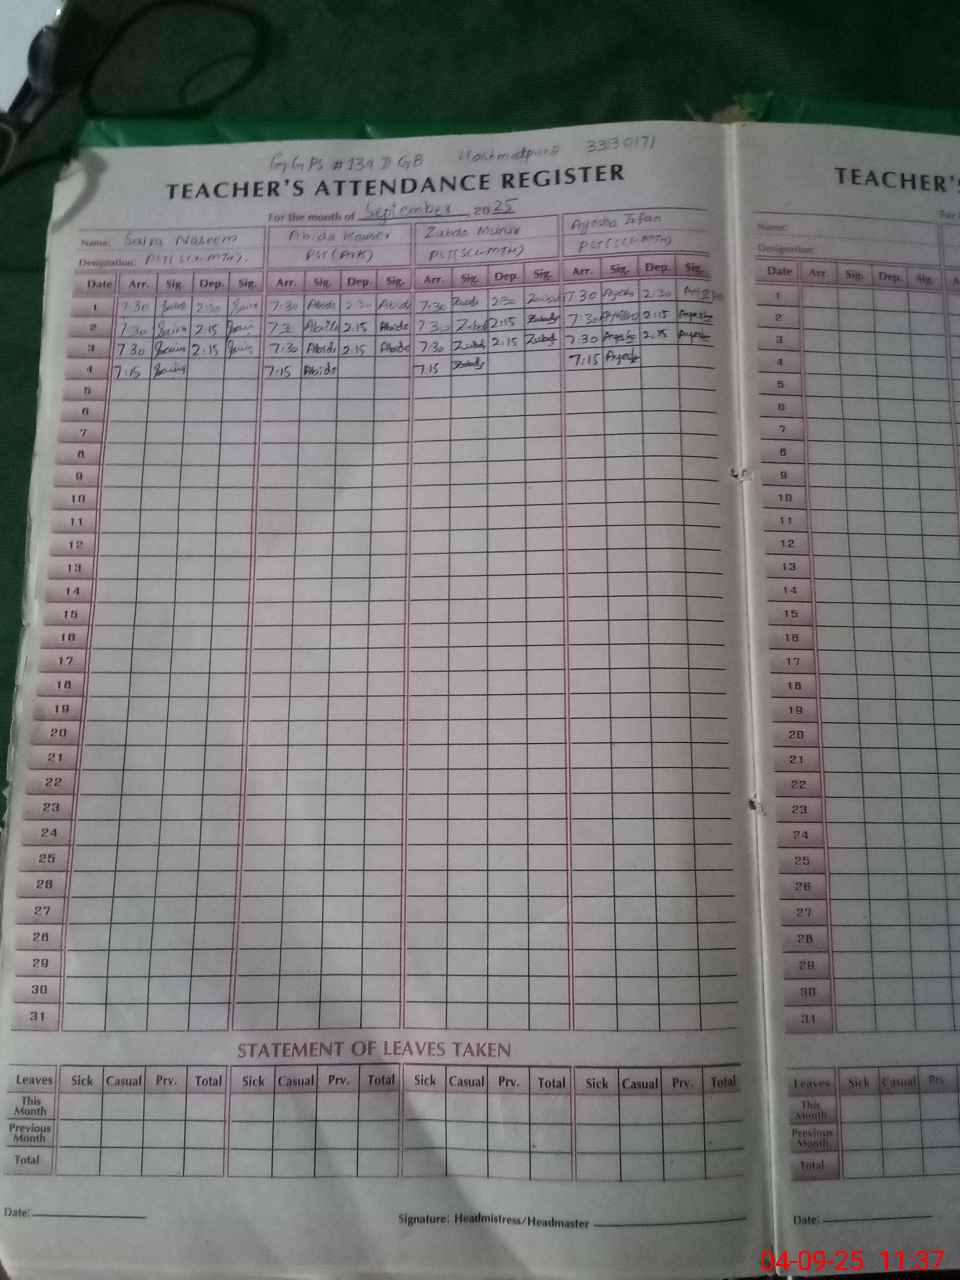 GGPS # 134 D GB 33130171
TEACHER'S ATTENDANCE REGISTER
For the month of September, 2025
Name: Saira Naseem Abida Zahda Munir Ayesha Irfan
Designation: PST(Sci-MTH). PST(Arts) PST(SCI-MTH) PST(SCI-MTH)
Date Arr. Sig. Dep. Sig. Arr. Sig. Dep. Sig. Arr. Sig. Dep. Sig. Arr. Sig. Dep. Sig.
1 7:30 Saira 2:30 Saira 7:30 Abida 2:30 Abida 7:30 2:30 7:30 Ayesha 2:30
2 7:30 Saira 2:15 Saira 7:30 Abida 2:15 Abida 7:30 2:15 7:30 Ayesha 2:15 Ayesha
3 7:30 Saira 2:15 Saira 7:30 Abida 2:15 Abida 7:30 2:15 7:30 Ayesha 2:15 Ayesha
4 7:15 Saira 7:15 Abida 7:15 7:15 Ayesha
5
6
7
8
9
10
11
12
13
14
15
16
17
18
19
20
21
22
23
24
25
26
27
28
29
30
31
STATEMENT OF LEAVES TAKEN
Leaves Sick Casual Prv. Total Sick Casual Prv. Total Sick Casual Prv. Total Sick Casual Prv. Total
This Month
Previous Month
Total
Date:
Signature: Headmistress/Headmaster
TEACHER'S
Name:
Designation:
Date Arr. Sig. Dep. Sig.
1
2
3
4
5
6
7
8
9
10
11
12
13
14
15
16
17
18
19
20
21
22
23
24
25
26
27
28
29
30
31
Leaves Sick Casual Prv.
This Month
Previous Month
Total
Date:
04-09-25 11:37